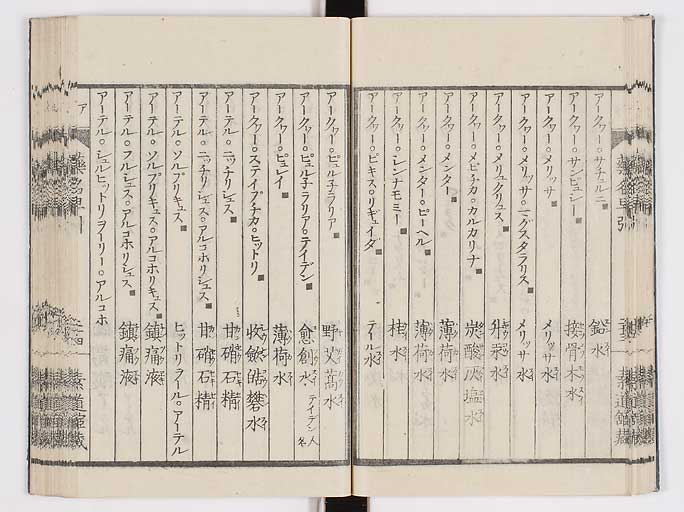 アークワー。サチュルニ 鉛水
アークワー。サンビュシー 接骨木水
アークワー。メリッサ メリッサ水
アークワー。メリッサ。 メリッサ水
アークワー。メリュクリュス 水
アークワー。 カルカリナ 炭酸 水
アークワー。メンター 薄荷水
アークワー。メンター。ピーペル 薄荷水
アークワー。シンナモミー 桂水
アークワー。ピキス。リキュイダ テイル水
アークワー。 野艾蒿水
アークワー。 テイデン 愈創水 テイデン人名
アークワー。ピュレイ 薄荷水
アークワー。ステイプチカ。ヒットリ 收斂皓礬水
アーテル。ニッチリシュス 甘硝石精
アーテル。ニッチリシュス。アルコホリシュス 甘硝石精
アーテル。ソルプリキュス ヒットリヲール。アーテル
アーテル。ソルプリキュス。アルコホリキュス 鎮痛液
アーテル。フルシュス。アルコホリシュス 鎮痛液
アーテル。シュルヒットリヲーリー。アルコホ